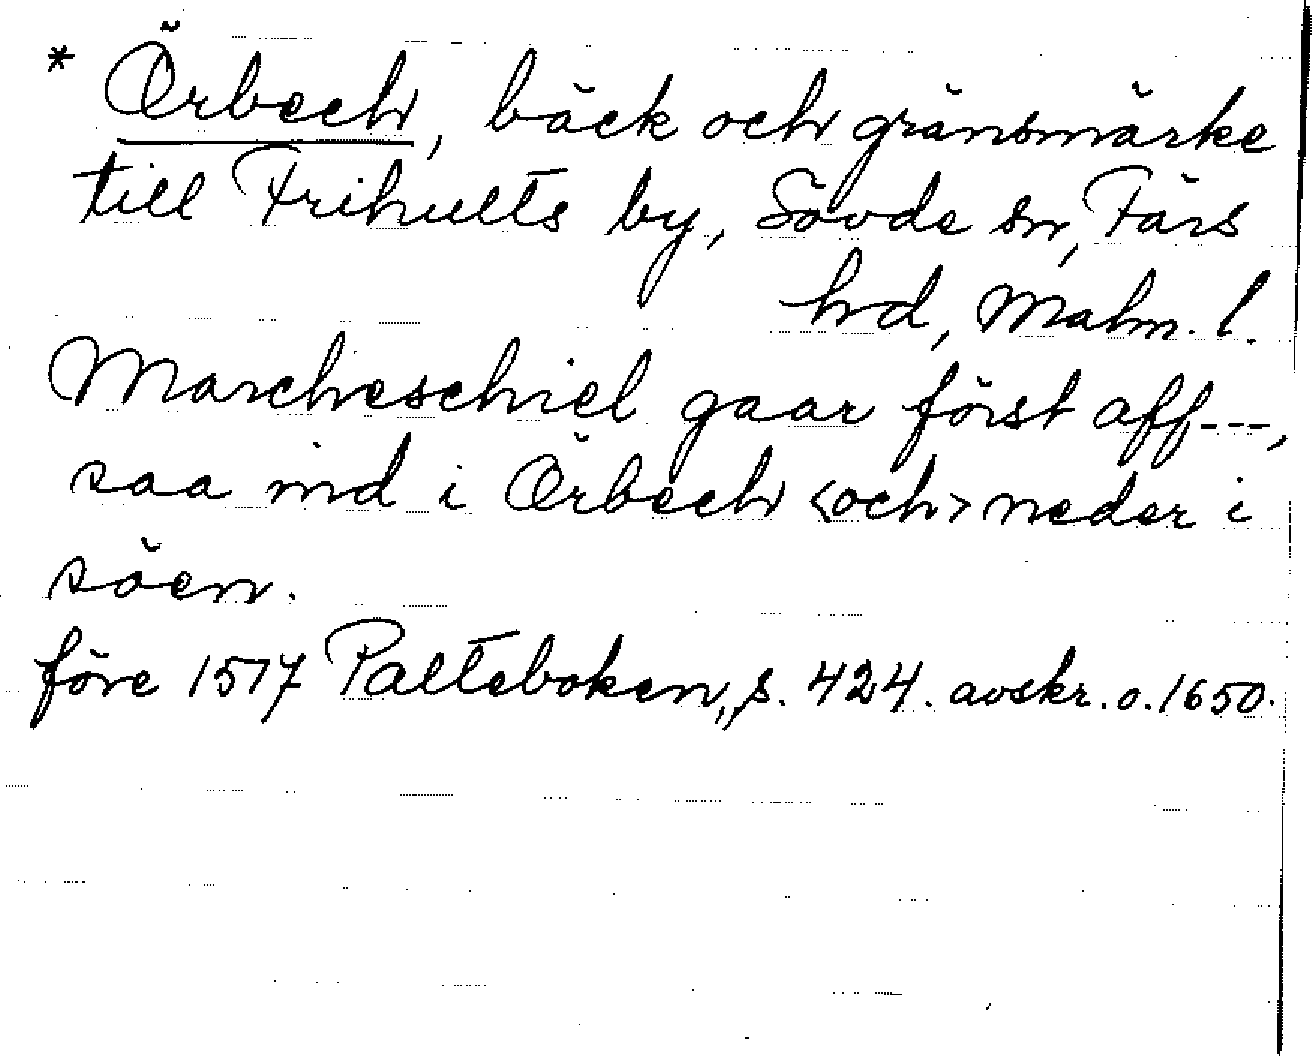 * Örbech, bäck och gränsmärke
till Frihults by, Sövde sn, Färs
hd, Malm. l.
Marcheschiel gaar först aff---,
saa ind i Örbech <och> neder i
söen.
före 1517 Palteboken, s. 424. avskr. o. 1650.